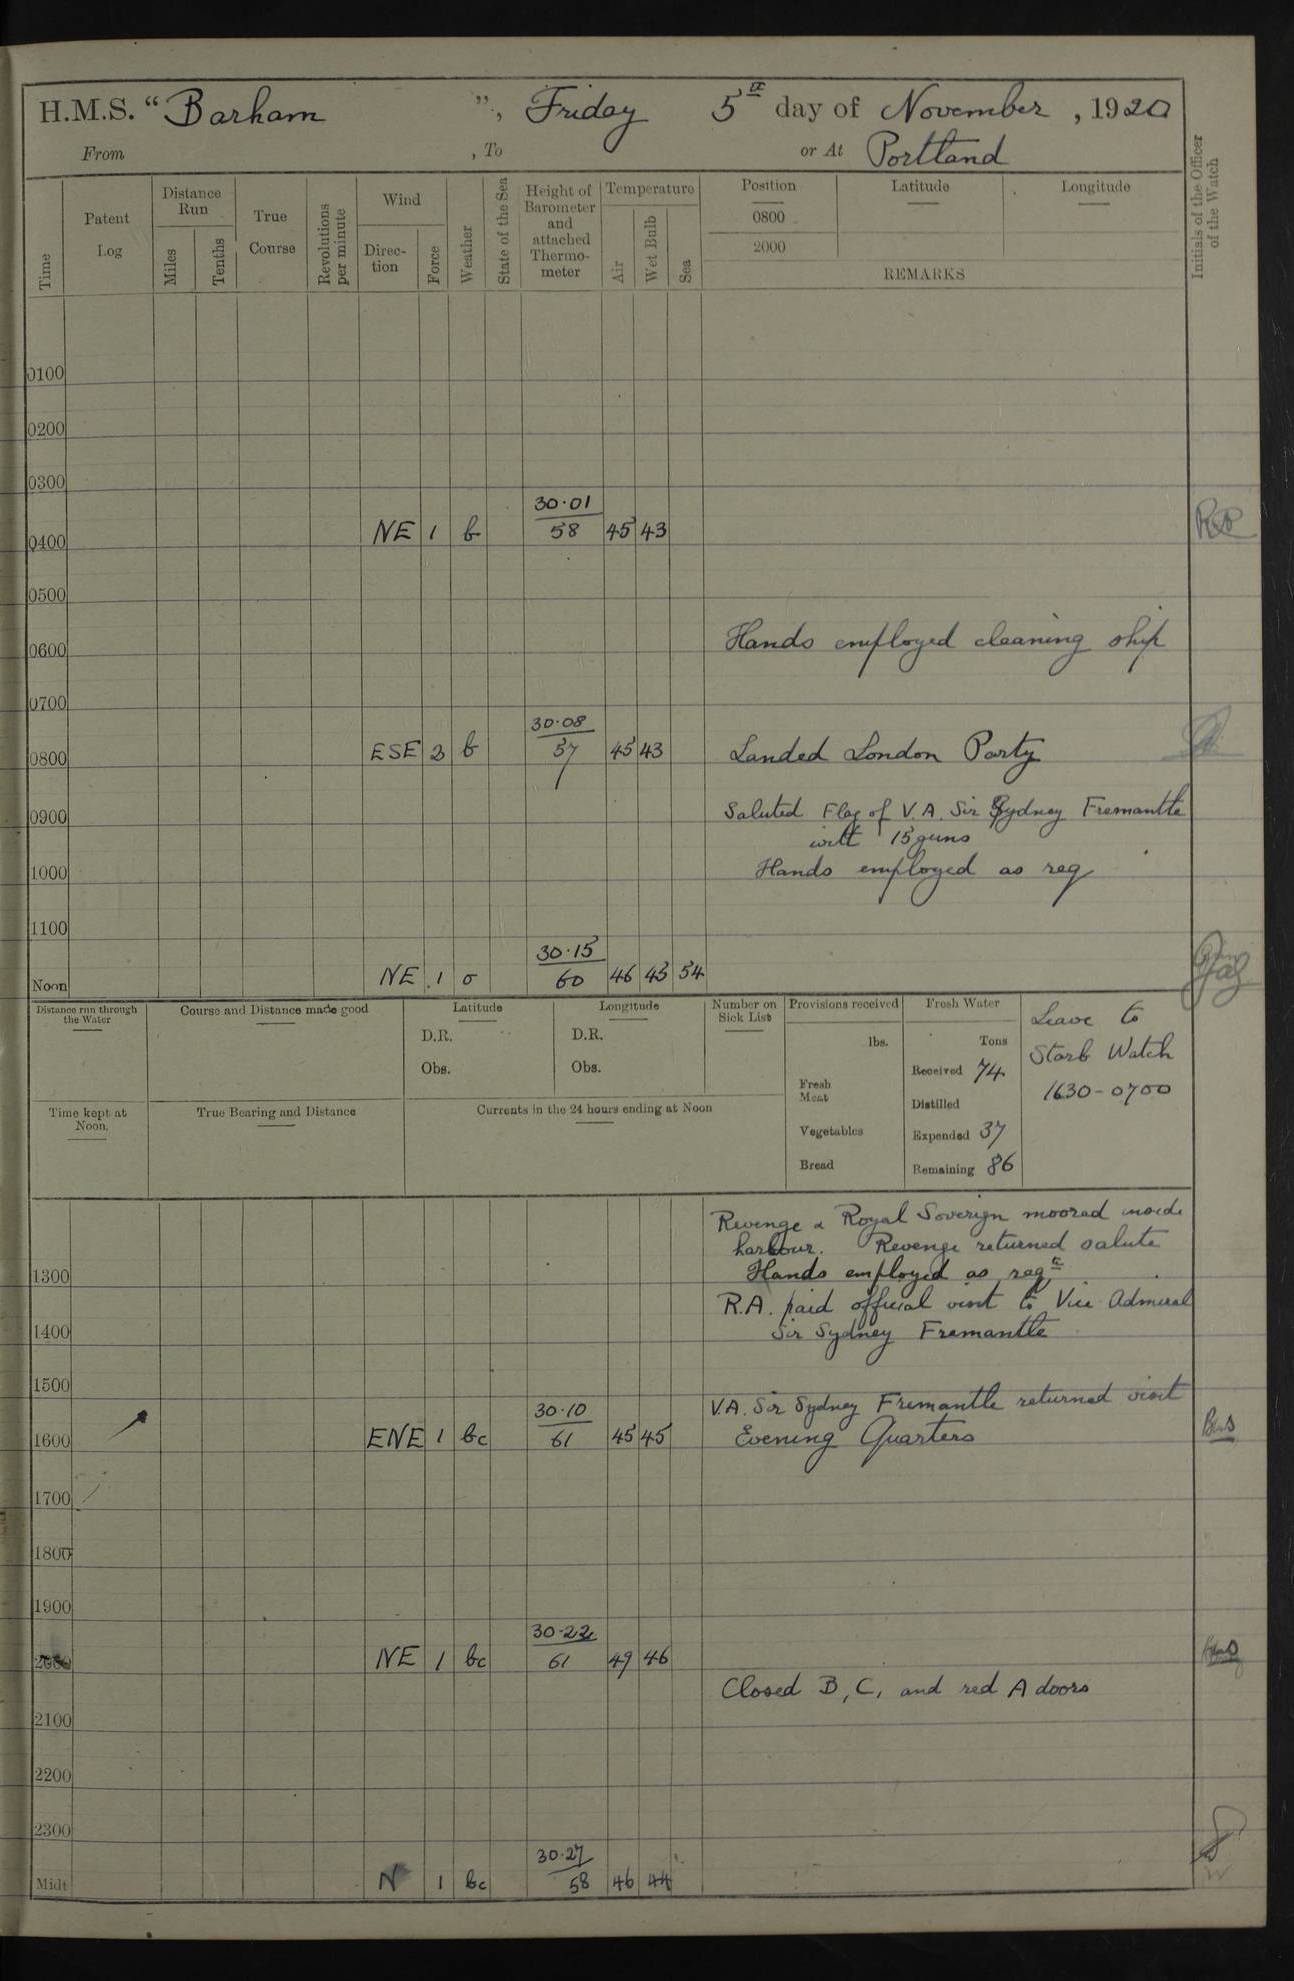 H.M.S. “Barham ”, Friday 5th day of November, 1920
From , To or At Portland
Time
Patent Log
Distance Run
Miles
Tenths
True Course
Revolutions per minute
Wind
Direc-tion
Force
Weather
State of the Sea
Height of Barometer and attached Thermo-meter
Temperature
Air
Wet Bulb
Sea
Position
0800
2000
Latitude
Longitude
REMARKS
Initials of the Officer of the Watch
0100
0200
0300
30·01
0400 NE 1 b 58 45 43
0500
0600 Hands employed cleaning ship
0700
30·08
0800 ESE 2 b 57 45 43 Landed London Party
0900 Saluted Flag of V.A. Sir Sydney Fremantle
with 15 guns
1000 Hands employed as req
1100
30·15
Noon NE 1 o 60 46 43 54
Distance run through the Water
Course and Distance made good
Latitude
D.R.
Obs.
Longitude
D.R.
Obs.
Number on Sick List
Provisions received
lbs.
Fresh Meat
Vegetables
Bread
Fresh Water
Tons
Received 74
Distilled
Expended 37
Remaining 86
Leave to
Starb Watch
1630-0700
Time kept at Noon.
True Bearing and Distance
Currents in the 24 hours ending at Noon
Revenge & Royal Soverign moored inside
harbour. Revenge returned salute
1300 Hands employed as reqd
R.A. paid official visit to Vice Admiral
1400 Sir Sydney Fremantle
1500
30·10 V.A. Sir Sydney Fremantle returned visit
1600 ENE 1 bc 61 45 45 Evening Quarters
1700
1800
1900
30·22
2000 NE 1 bc 61 49 46
Closed B, C, and red A doors
2100
2200
2300
30·27
Midt N 1 bc 58 46 44